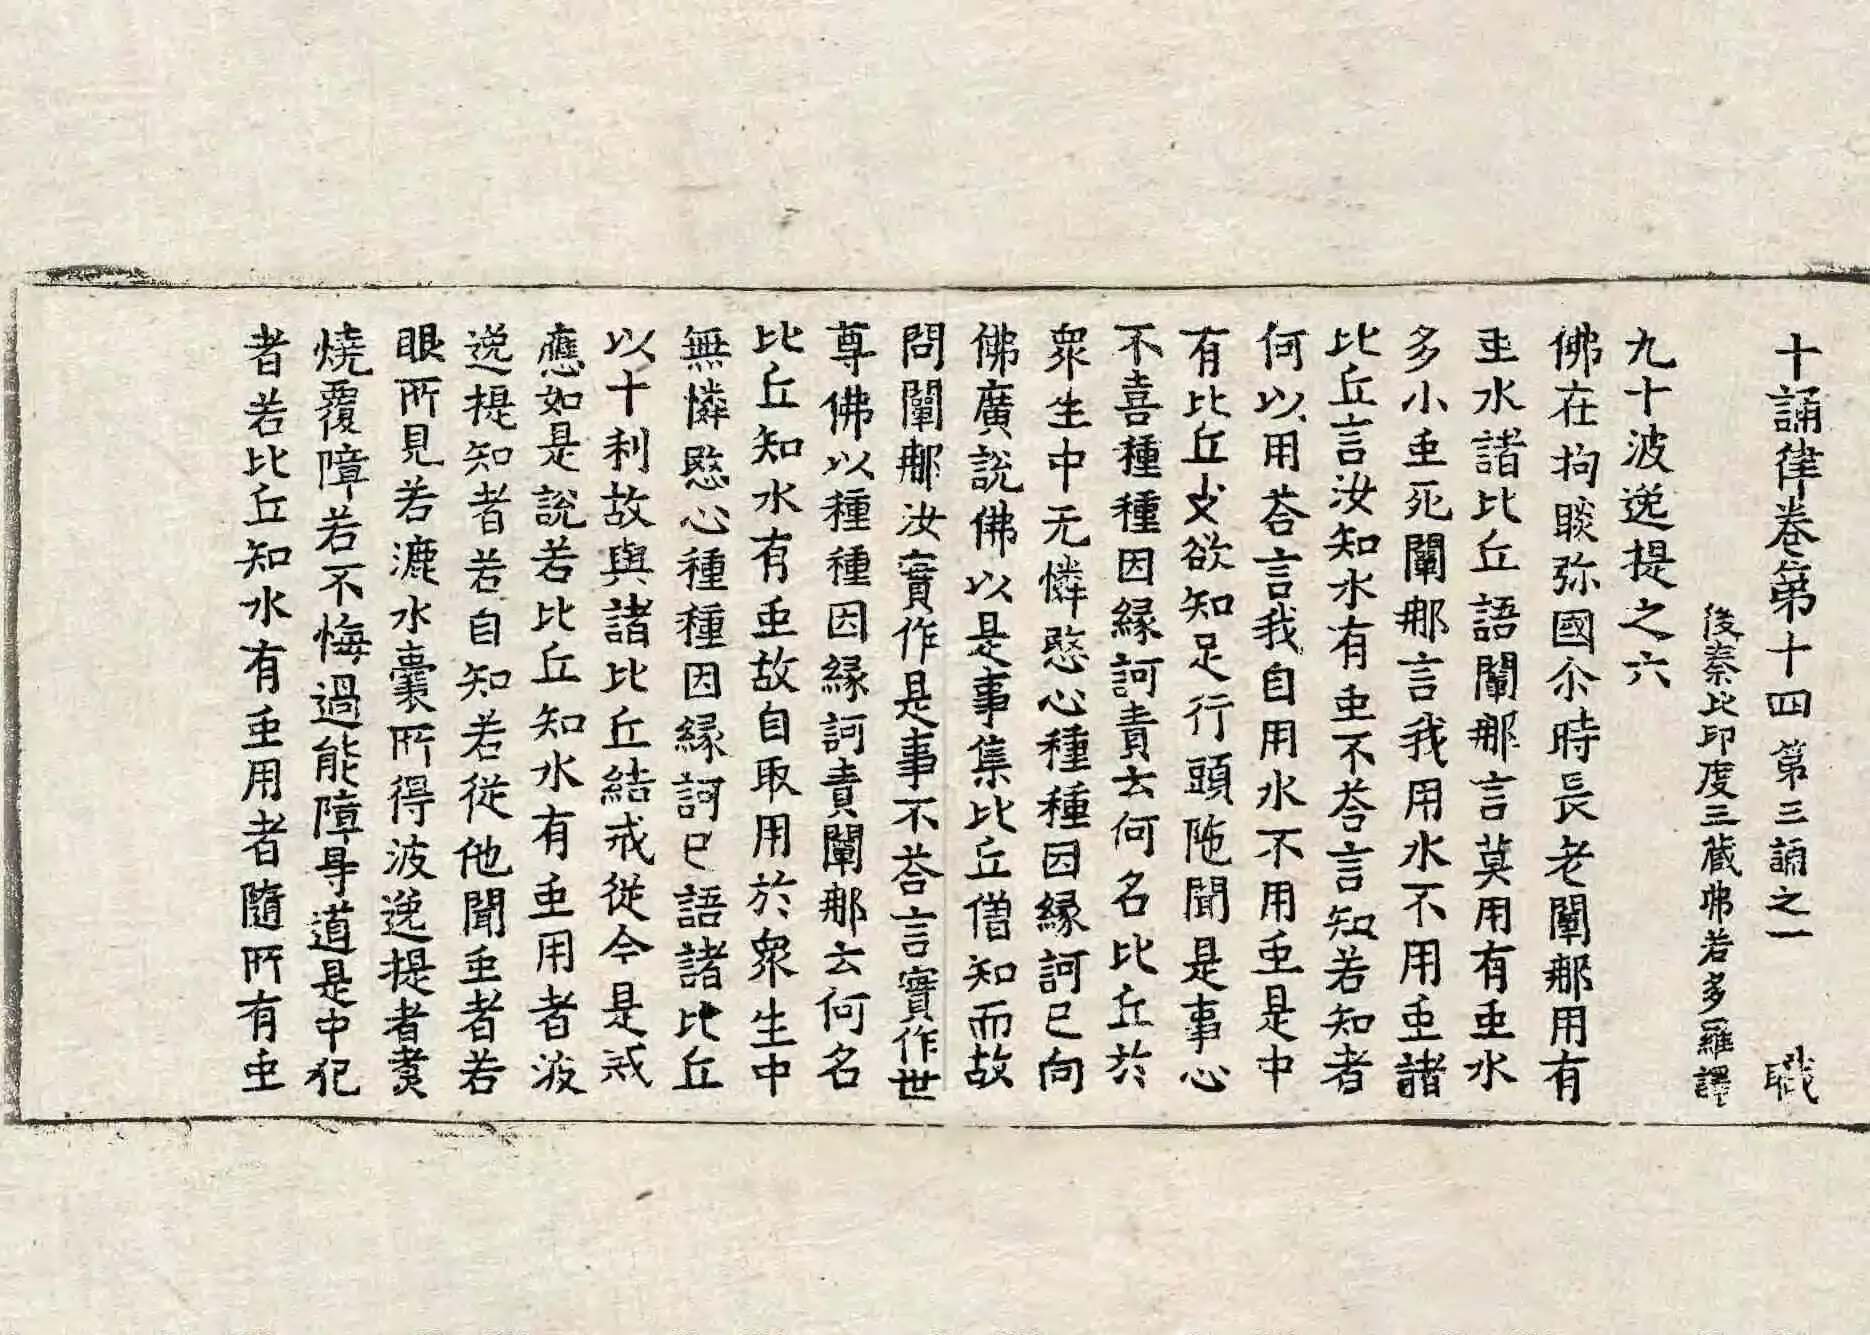 十誦律卷第十四 第三誦之一 職
後秦北印度三藏弗若多羅譯
九十波逸提之六
佛在拘睒弥國尒時長老闡那用有
䖝水諸比丘語闡那言莫用有䖝水
多小䖝死闡那言我用水不用䖝諸
比丘言汝知水有䖝不荅言知若知者
何以用荅言我自用水不用䖝是中
有比丘少欲知足行頭陁聞是事心
不喜種種因縁訶責云何名比丘於
衆生中无憐愍心種種因縁訶已向
佛廣說佛以是事集比丘僧知而故
問闡那汝實作是事不荅言實作世
尊佛以種種因縁訶責闡那云何名
比丘知水有䖝故自取用於衆生中
無憐愍心種種因縁訶已語諸比丘
以十利故與諸比丘結戒從今是戒
應如是說若比丘知水有䖝用者波
逸提知者若自知若從他聞䖝者若
眼所見若漉水囊所得波逸提者煑
燒覆障若不悔過能障㝵道是中犯
者若比丘知水有䖝用者隨所有䖝